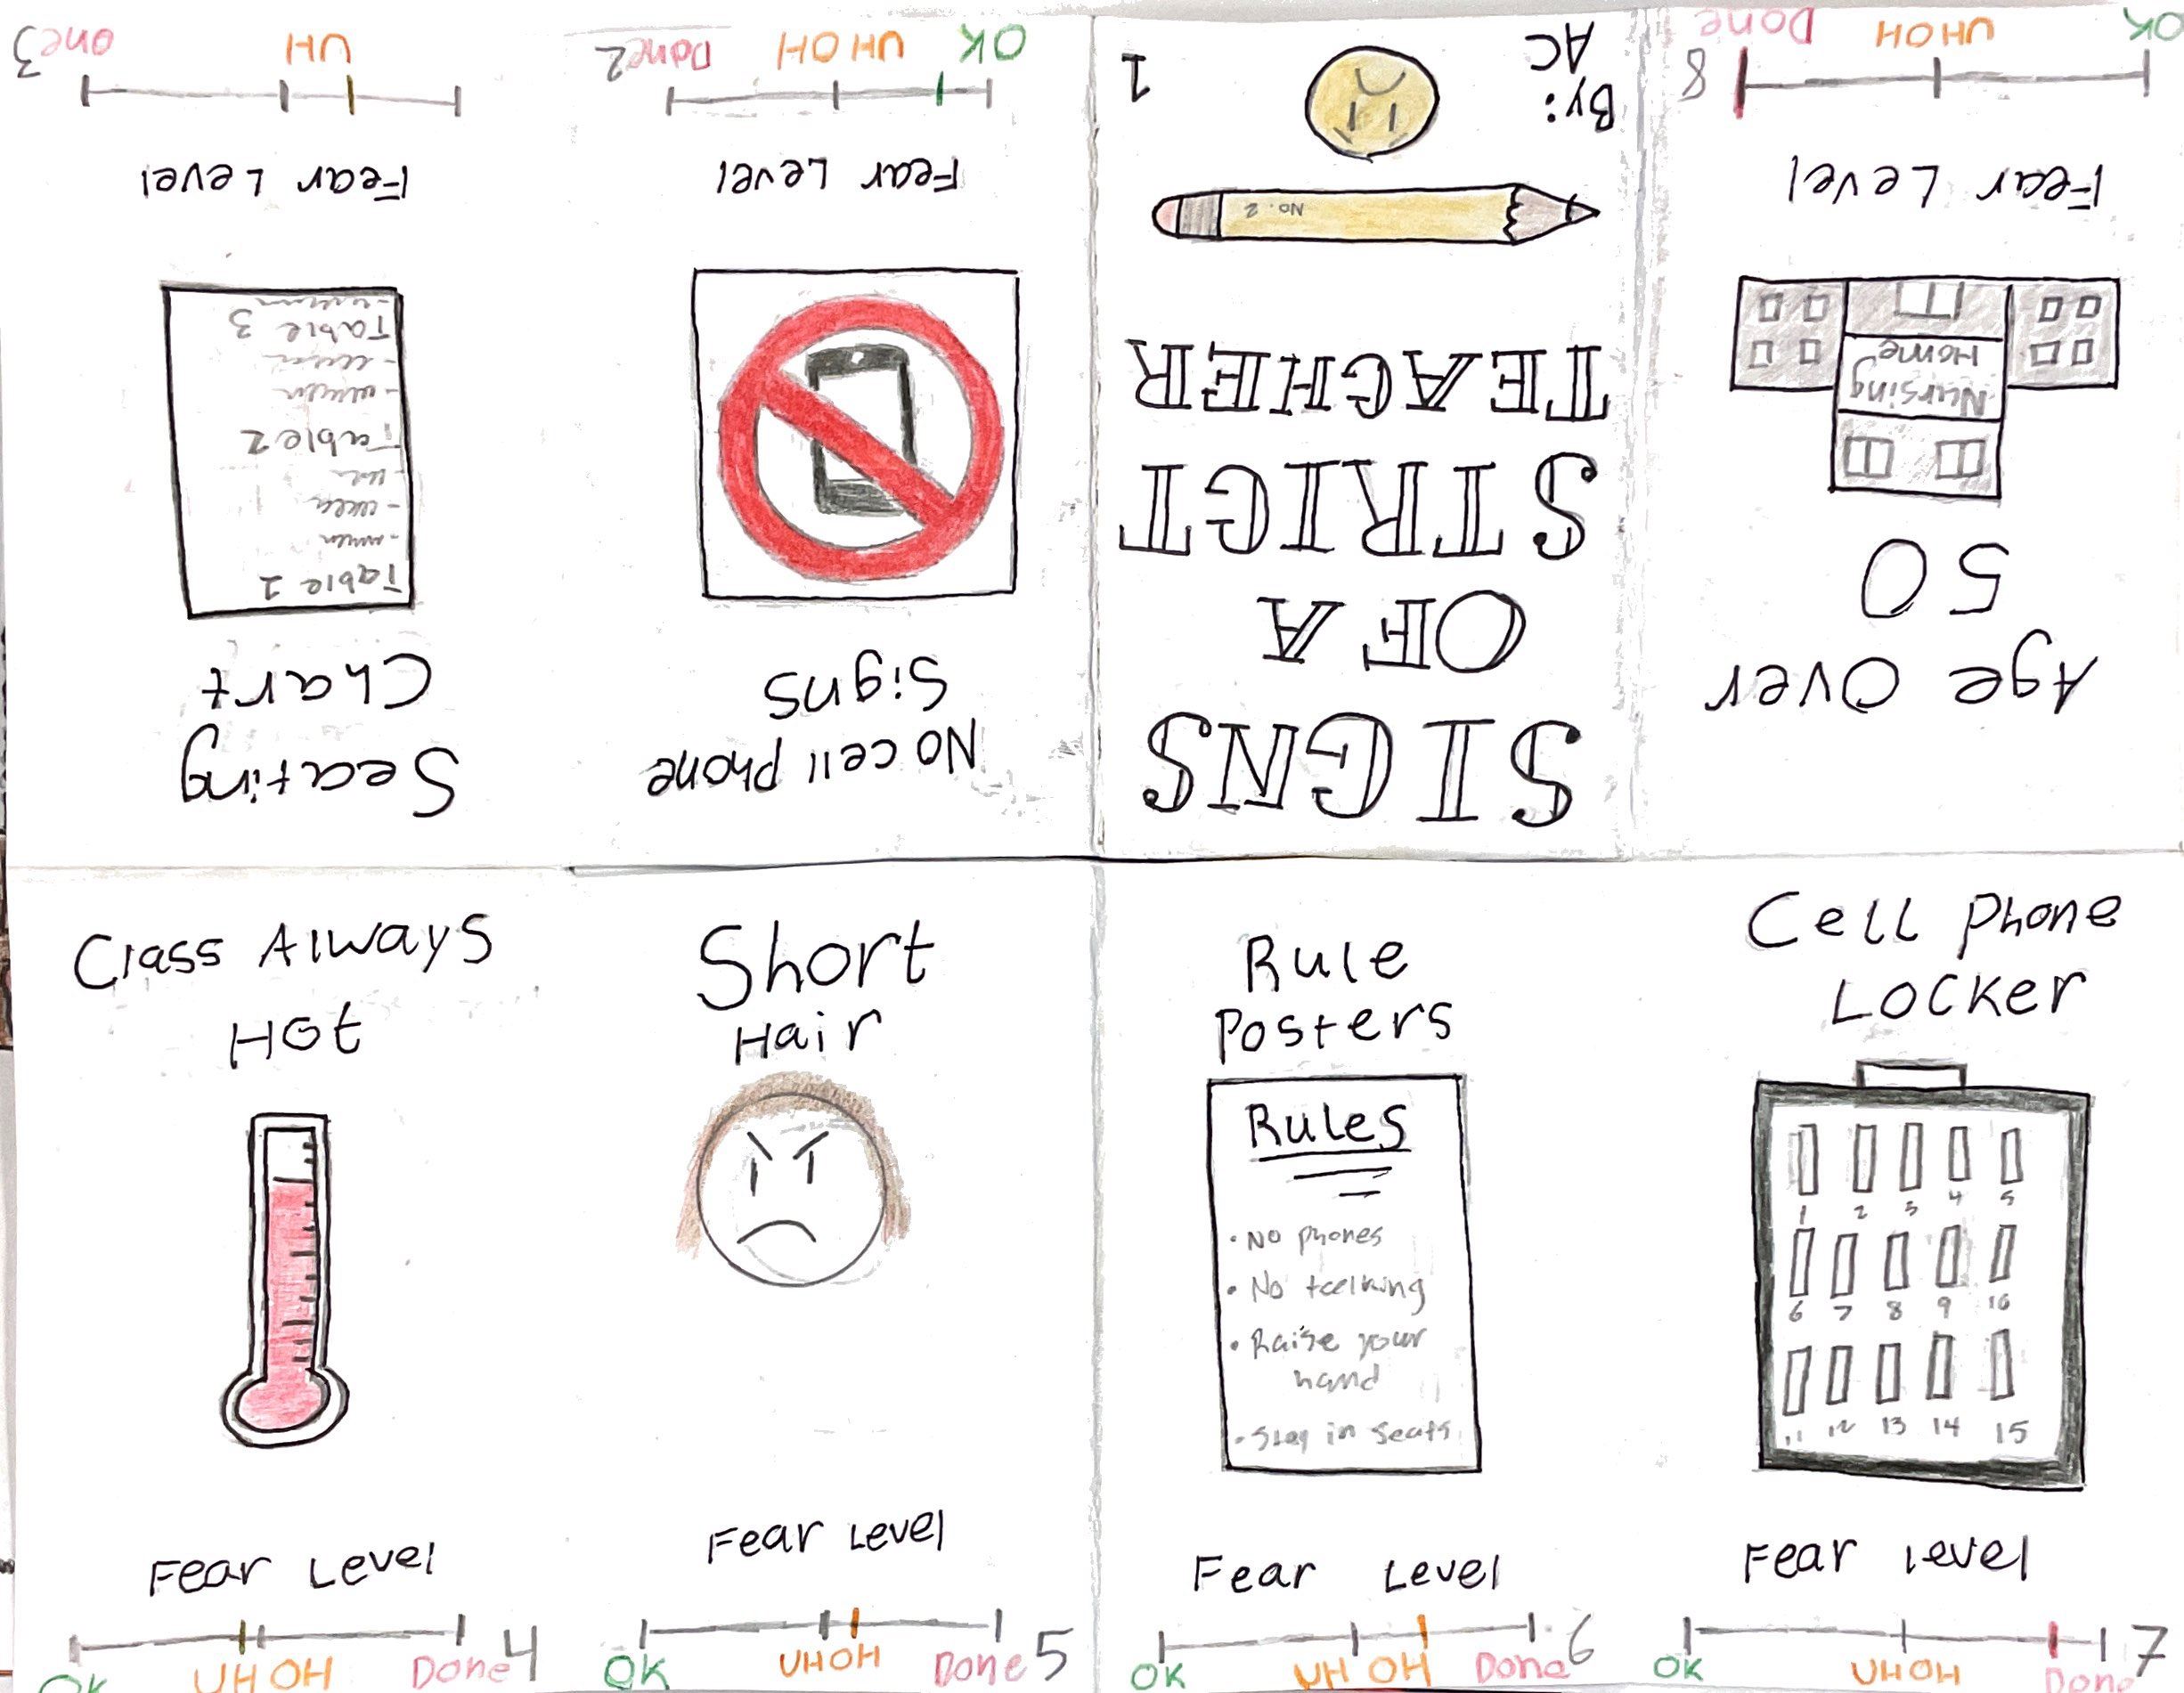 SIGNS
OF A
STRICT
TEACHER
No. 2
By:
AC
1
No cell phone
Signs
Fear Level
OK UH OH Done 2
Seating
Chart
Table 1
Table 2
Table 3
Fear Level
UH one 3
Class Always
Hot
Fear Level
OK UH OH Done 4
Short
Hair
Fear Level
OK UH OH Done 5
Rule
Posters
Rules
• No phones
• No talking
• Raise your
hand
• Stay in seats
Fear Level
OK UH OH Done 6
Cell phone
Locker
1 2 3 4 5
6 7 8 9 10
11 12 13 14 15
Fear Level
OK UH OH Done 7
Age Over
50
Nursing
Home
Fear Level
OK UH OH Done 8